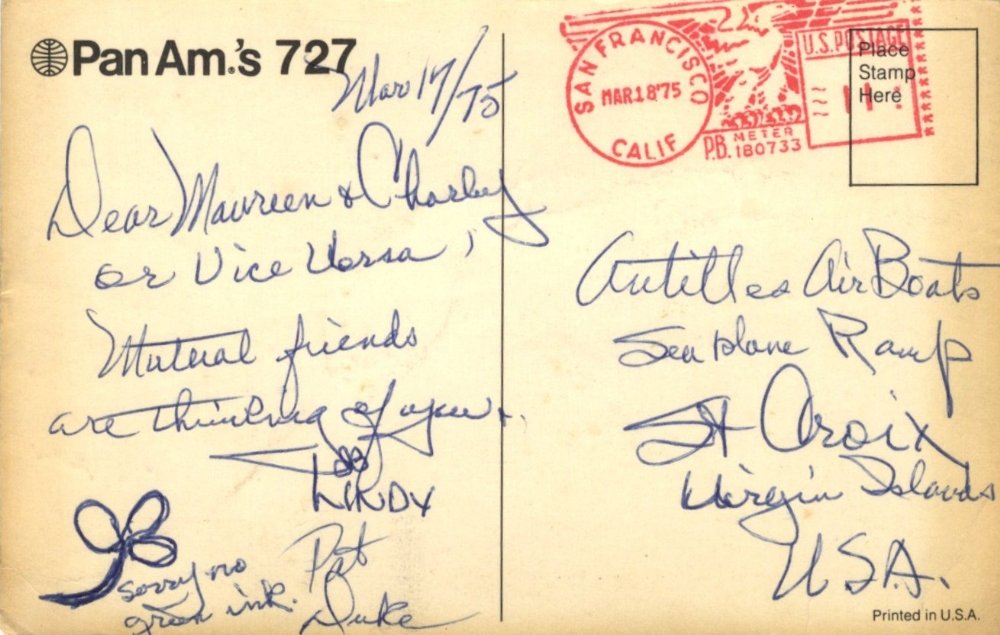 Pan Am.'s 727
Mar 17/75
Dear Maureen & Charley
or Vice Versa,
Mutual friends
are thinking of you.
LINDY
Pat
Duke
sorry no
green ink.
SAN FRANCISCO
MAR 18 '75
CALIF
U.S. POSTAGE
11
P.B. METER
180733
Place
Stamp
Here
Antilles Air Boats
Sea plane Ramp
St Croix
Virgin Islands
U.S.A.
Printed in U.S.A.